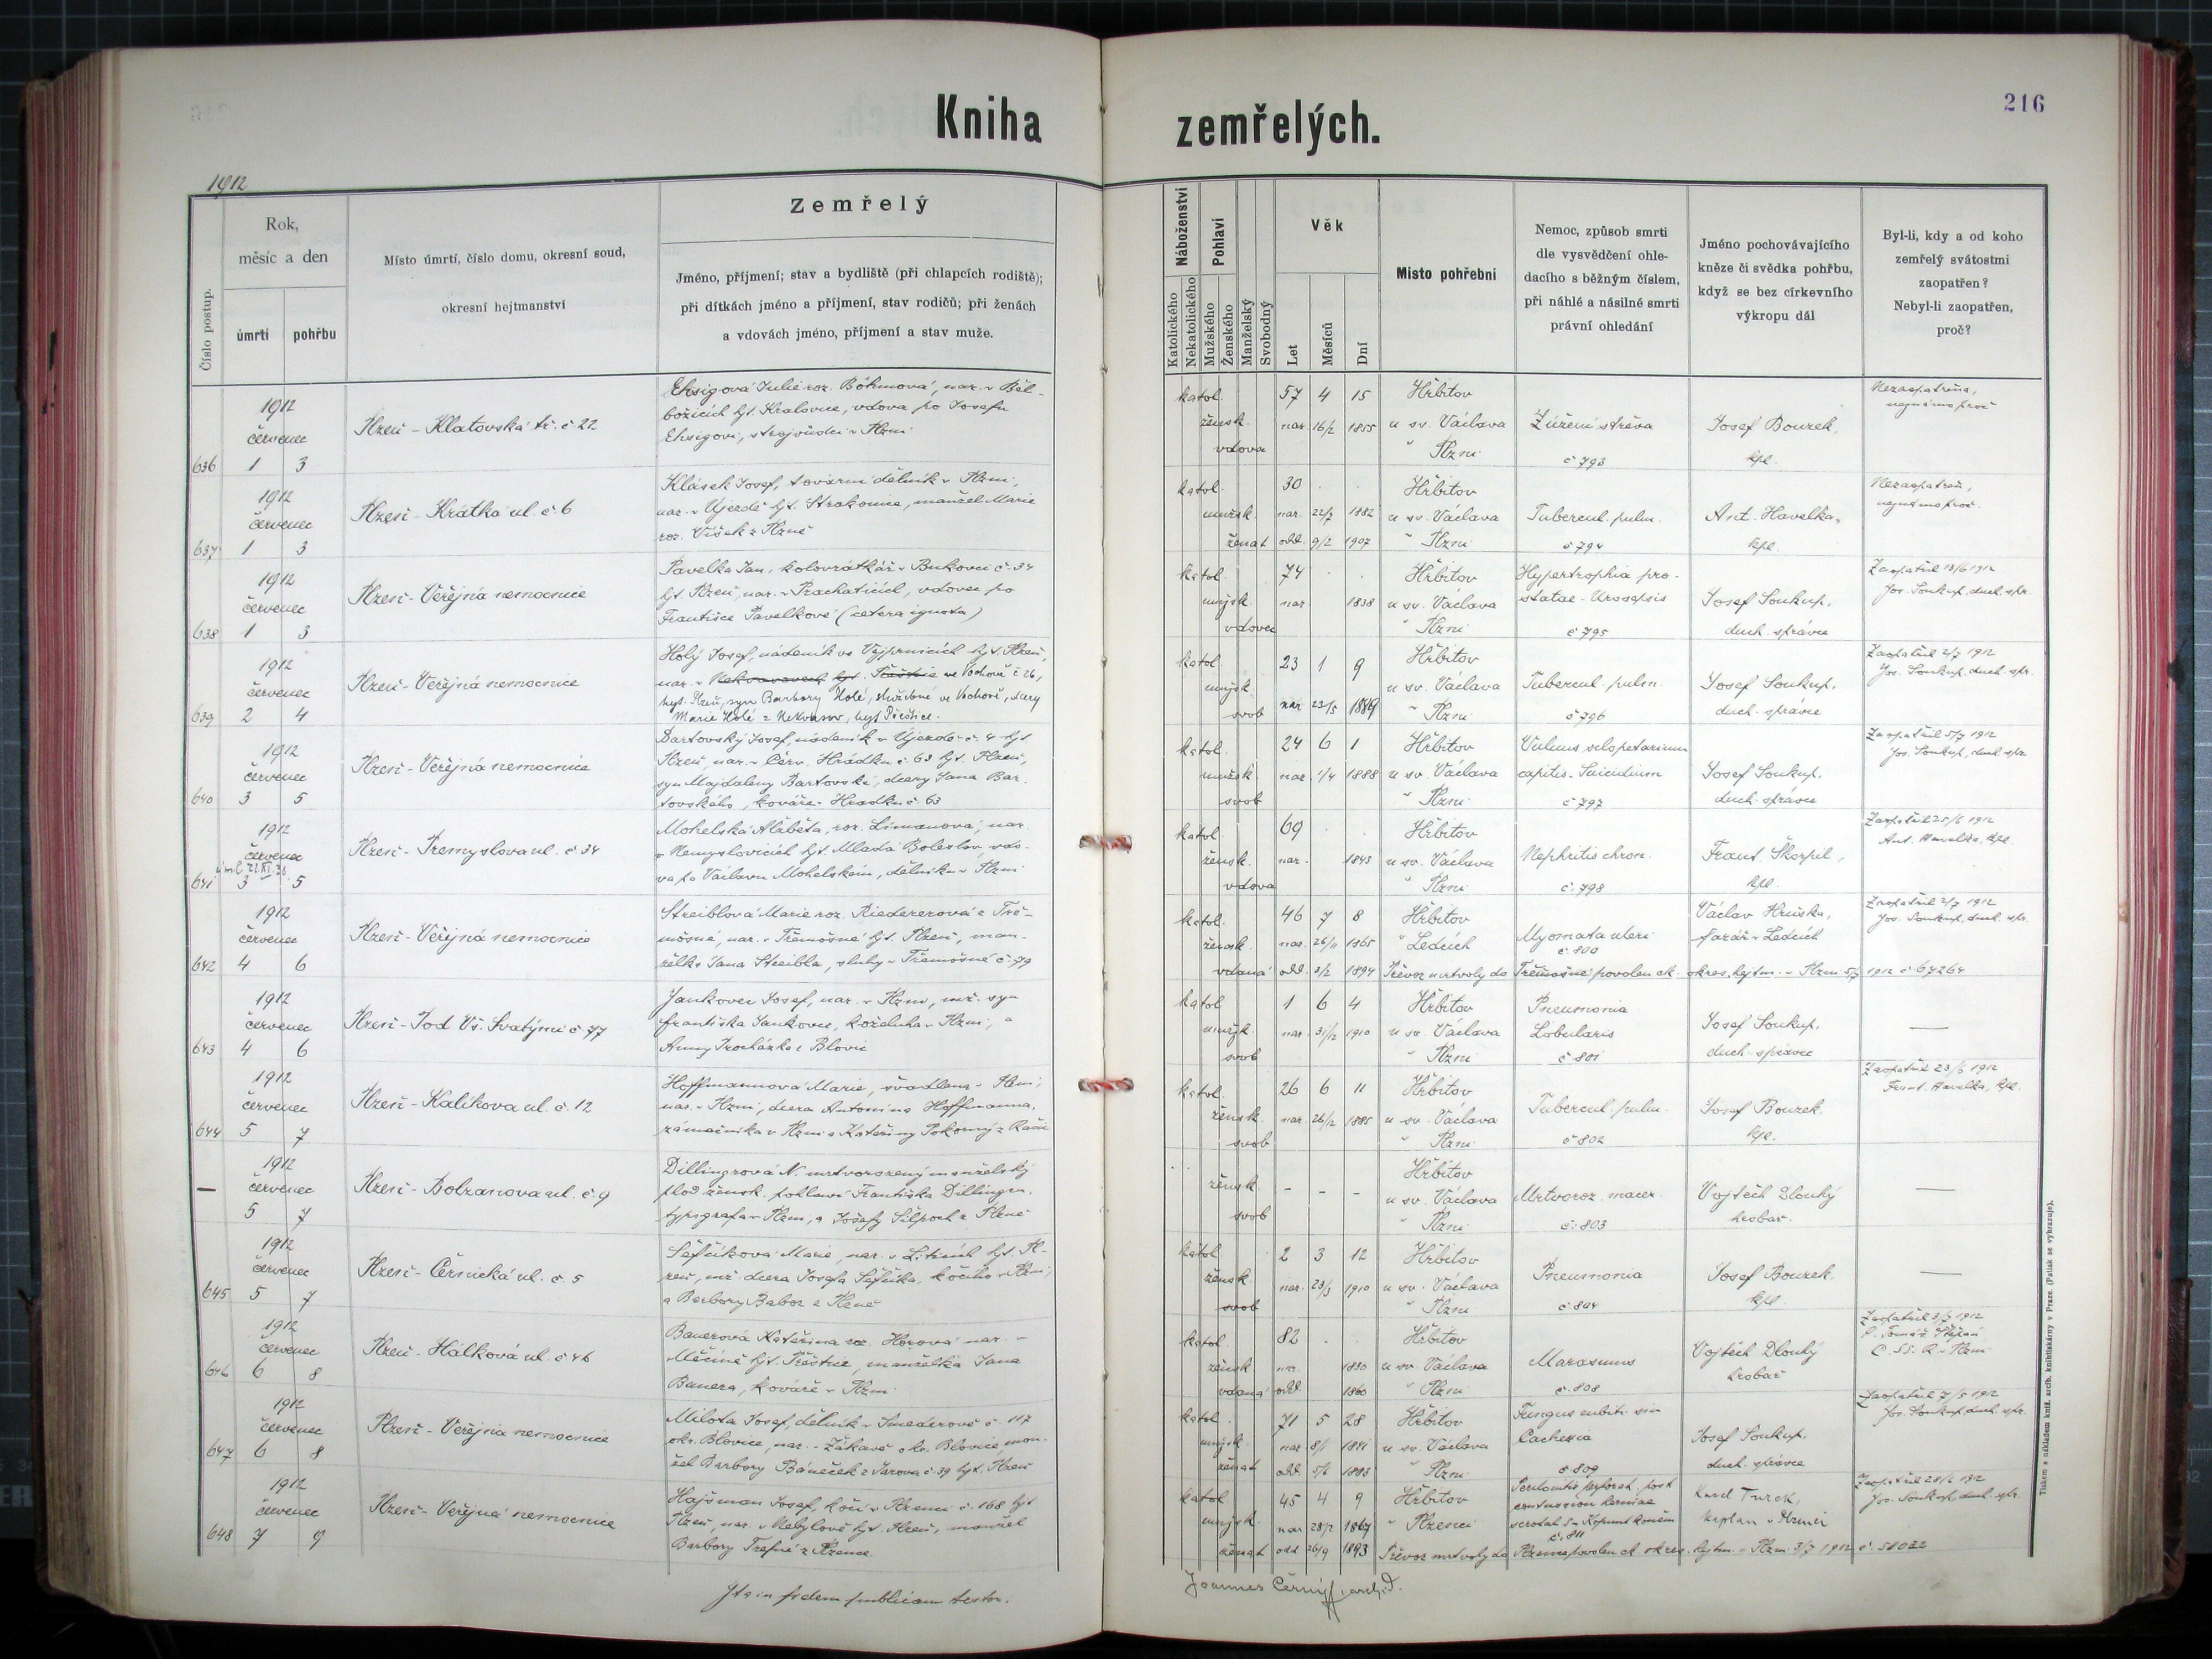 216
Kniha zemřelých.
1912
Číslo postup.
Rok,
měsíc a den
úmrtí
pohřbu
Místo úmrtí, číslo domu, okresní soud,
okresní hejtmanství
Zemřelý
Jméno, příjmení; stav a bydliště (při chlapcích rodiště);
při dítkách jméno a příjmení, stav rodičů; při ženách
a vdovách jméno, příjmení a stav muže.
Náboženství
Katolického
Nekatolického
Pohlaví
Mužského
Ženského
Manželský
Svobodný
Věk
Let
Měsíců
Dní
Místo pohřební
Nemoc, způsob smrti
dle vysvědčení ohle-
dacího s běžným číslem,
při náhlé a násilné smrti
právní ohledání
Jméno pochovávajícího
kněze či svědka pohřbu,
když se bez církevního
výkropu dál
Byl-li, kdy a od koho
zemřelý svátostmi
zaopatřen?
Nebyl-li zaopatřen,
proč?
636
1912
červenec
1 3
Plzeň - Klatovská tř. č 22
Ehsigová Julie roz. Böhmová, nar. v Běl-
božicích hjt. Kralovice, vdova po Josefu
Ehsigovi, strojvůdci v Plzni
katol.
žensk.
vdova
57 4 15
nar. 16/2 1855
Hřbitov
u sv. Václava
" Plzni
Zúžení střeva
č 793
Josef Bouzek,
kpl.
Nezaopatřena,
neznámo proč
637
1912
červenec
1 3
Plzeň - Krátká ul. č 6
Klásek Josef, tovární dělník v Plzni,
nar. v Újezdě hjt. Strakonice, manžel Marie
roz. Víšek z Plzně
katol.
mužsk.
ženat
30 . .
nar. 22/7 1882
odd. 9/2 1907
Hřbitov
u sv. Václava
" Plzni
Tubercul. pulm.
č 794
Ant. Havelka,
kpl.
Nezaopatřen,
neznámo proč.
638
1912
červenec
1 3
Plzeň - Veřejná nemocnice
Pavelka Jan, kolovrátkář v Bukovci č 34
hjt. Plzeň, nar. v Prachaticích, vdovec po
Františce Pavelkové (cetera ignota)
katol.
mužsk.
vdovec
74 . .
nar. 1838
Hřbitov
u sv. Václava
" Plzni
Hypertrophia pro-
statae - Urosepsis
č 795
Josef Soukup,
duch. správce
Zaopatřil 13/6 1912
Jos. Soukup, duch. spr.
639
1912
červenec
2 4
Plzeň - Veřejná nemocnice
Holý Josef, nádeník ve Vejprnicích hjt. Plzeň,
nar. v Nekvasovech hjt. Přeštice ve Vochově č 26,
hejt. Plzeň, syn Barbory Holé, služebné ve Vochově, dcery
Marie Holé z Nekvasov, hejt Přeštice.
katol.
mužsk.
svob
23 1 9
nar 23/5 1889
Hřbitov
u sv. Václava
" Plzni
Tubercul. pulm.
č 796
Josef Soukup,
duch. správce
Zaopatřil 2/7 1912
Jos. Soukup, duch. spr.
640
1912
červenec
3 5
Plzeň - Veřejná nemocnice
Bartovský Josef, nádeník v Újezdě č. 4 hjt
Plzeň, nar. v Červ. Hrádku č 63 hjt. Plzeň,
syn Majdaleny Bartovské, dcery Jana Bar-
tovského, kováře v Hrádku č. 63
katol.
mužsk
svob
24 6 1
nar. 1/4 1888
Hřbitov
u sv. Václava
" Plzni
Vulnus sclopetarium
capitis. Suicidium
č 797
Josef Soukup,
duch. správce
Zaopatřil 5/7 1912
Jos. Soukup, duch. spr.
641
1912
červenec
3 5
Plzeň - Přemyslova ul. č 34
Mohelská Alžběta, roz. Limanová, nar.
v Nemyslovicích hjt. Mladá Boleslav, vdo-
va po Václavu Mohelském, dělníku v Plzni
katol.
žensk.
vdova
69 . .
nar. 1843
Hřbitov
u sv. Václava
" Plzni
Nephritis chron.
č. 798
Frant. Škorpil,
kpl.
Zaopatřil 25/6 1912
Ant. Havelka, kpl.
642
1912
červenec
4 6
Plzeň - Veřejná nemocnice
Streiblová Marie roz. Riedererová z Tře-
mošné, nar. v Třemošné hjt. Plzeň, man-
želka Jana Streibla, sluhy v Třemošné č. 79
katol.
žensk.
vdaná
46 7 8
nar. 26/11 1865
odd. 3/2 1894
Hřbitov
" Ledcích
Myomata uteri
č 800
Václav Hruška,
farář v Ledcích
Zaopatřil 2/7 1912
Jos. Soukup, duch. spr.
Převoz mrtvoly do Třemošné povolen ck. okres. hejtm. v Plzni 5/7 1912 č 67264
643
1912
červenec
4 6
Plzeň - Pod Vš. Svatými č 77
Jankovec Josef, nar. v Plzni, mř. syn
Františka Jankovce, koželuha v Plzni, a
Anny Procházka z Blovic
katol
mužsk
svob
1 6 4
nar. 31/12 1910
Hřbitov
u sv. Václava
" Plzni
Pneumonia
Lobularis
č 801
Josef Soukup,
duch. správce
—
644
1912
červenec
5 7
Plzeň - Kalikova ul. č. 12
Hoffmannová Marie, švadlena v Plzni,
nar. v Plzni, dcera Antonína Hoffmanna,
zámečníka v Plzni a Kateřiny Pokorný z
katol.
žensk.
svob
26 6 11
nar. 26/12 1885
Hřbitov
u sv. Václava
" Plzni
Tubercul. pulm.
č 802
Josef Bouzek.
kpl.
Zaopatřil 23/6 1912
Havelka, kpl.
—
1912
červenec
5 7
Plzeň - Bolzanova ul. č. 9
Dillingrová N. mrtvorozený manželský
plod žensk. pohlaví Františka Dillingra,
typografa v Plzni, a Josefy z Plzně
žensk.
svob
- - -
Hřbitov
u sv. Václava
" Plzni
Mrtvoroz. macer.
č. 803
Vojtěch Dlouhý
hrobař.
—
645
1912
červenec
5 7
Plzeň - Černická ul. č. 5
Šefčíková Marie, nar. v Liticích hjt. Pl-
zeň, mř. dcera Josefa Šefčíka, kočího v Plzni,
a Barbory Babor z Plzně
katol.
žensk
svob
2 3 12
nar. 23/3 1910
Hřbitov
u sv. Václava
" Plzni
Pneumonia
č. 804
Josef Bouzek.
kpl.
—
646
1912
červenec
6 8
Plzeň - Hálková ul. č 46
Bauerová Kateřina roz. Horová nar. v
Měčíně hjt. Přeštice, manželka Jana
Bauera, kováře v Plzni
katol.
žensk
vdaná
82 . .
nar. 1830
odd. 1860
Hřbitov
u sv. Václava
" Plzni
Marasmus
č. 808
Vojtěch Dlouhý
hrobař
Zaopatřil 3/7 1912
P. Tomáš Štěpán
C. SS. R. v Plzni
647
1912
červenec
6 8
Plzeň - Veřejná nemocnice
Milota Josef, dělník v Smederově č. 117
okr. Blovice, nar. v Žákavě okr. Blovice man-
žel Barbory Báneček z Jarova č. 39 hjt. Plzeň
katol.
mužsk.
ženat
71 5 28
nar 8/1 1841
odd. 5/6 1883
Hřbitov
u sv. Václava
" Plzni
Fungus cubiti sin
Cachexia
č. 809
Josef Soukup,
duch. správce
Zaopatřil 7/5 1912
Jos. Soukup, duch. spr.
648
1912
červenec
7 9
Plzeň - Veřejná nemocnice
Hajšman Josef, kočí v Plzenci č. 168 hjt
Plzeň, nar. v Nebylově hjt. Plzeň, manžel
Barbory Trefné z Plzence
katol
mužsk.
ženat
45 4 9
nar 28/2 1867
odd 26/9 1893
Hřbitov
" Plzenci
Peritonitis perforat. post
contusionem herniae
scrotal.
č. 811
Karel Turek,
kaplan v Plzenci
Zaopatřil 28/6 1912
Jos. Soukup, duch. spr.
Převoz mrtvoly do Plzence povolen ck okres. hejtm. v Plzni 3/7 1912 č. 58022
Ita in fidem publicam testor.
Joannes Černý, archid.
Tiskem a nákladem kníž. arcib. knihtiskárny v Praze. (Patisk se vyhrazuje).